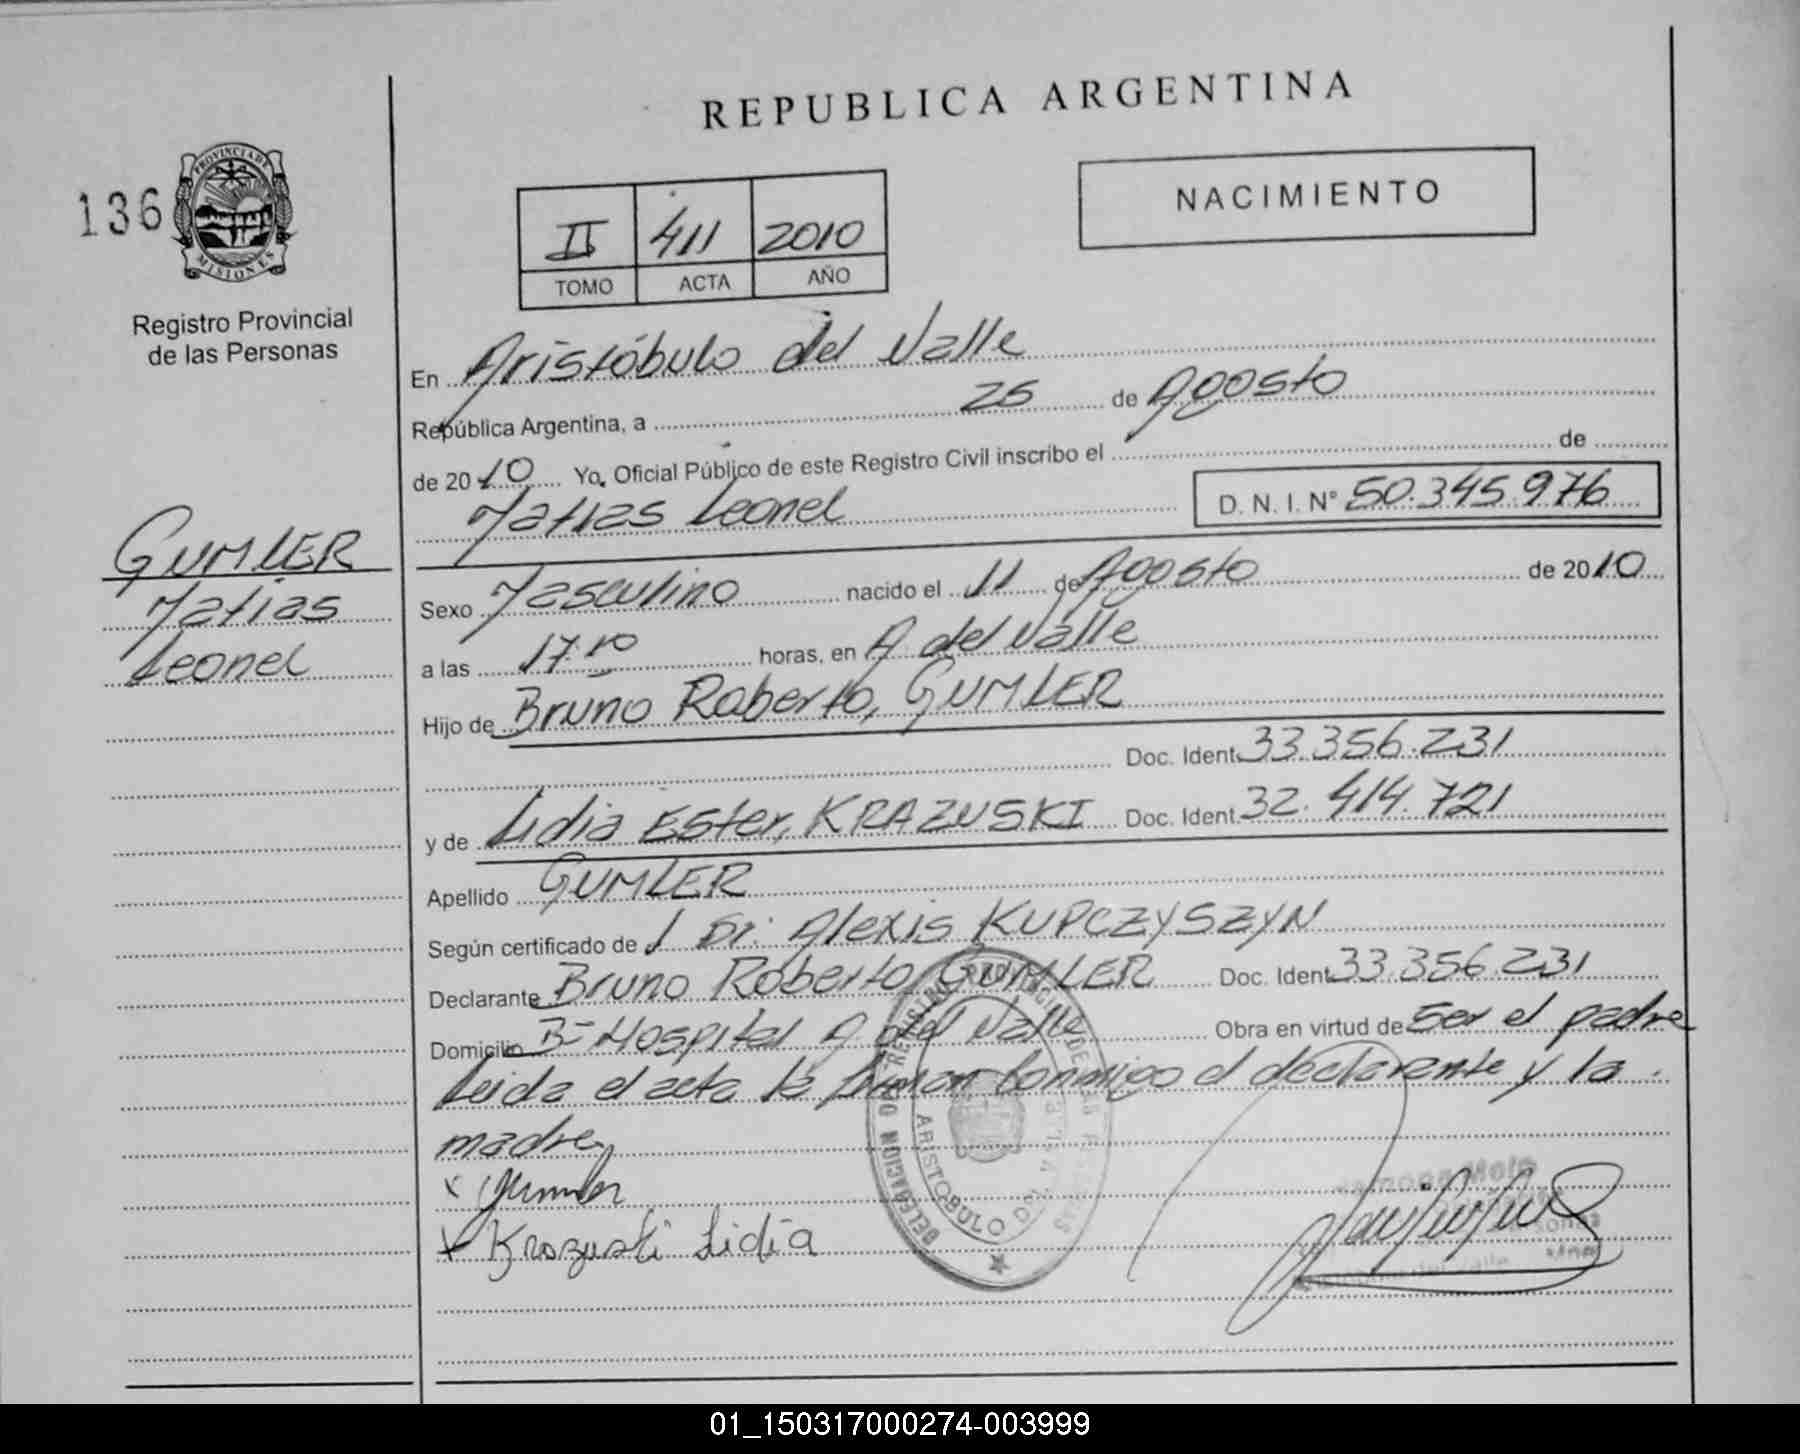 REPUBLICA ARGENTINA
136
PROVINCIA DE
MISIONES
Registro Provincial
de las Personas
NACIMIENTO
II 411 2010
TOMO ACTA AÑO
En Aristóbulo del Valle
República Argentina, a 25 de Agosto
de 2010 Yo, Oficial Público de este Registro Civil inscribo el de
Matias Leonel D. N. I. N° 50.345.976
GUMLER
Matias
Leonel
Sexo Masculino nacido el 11 de Agosto de 2010
a las 17:10 horas, en A del Valle
Hijo de Bruno Roberto, GUMLER
Doc. Ident. 33.356.231
y de Lidia Ester, KRAZUSKI Doc. Ident. 32.414.721
Apellido GUMLER
Según certificado de / Dr. Alexis KUPCZYSZYN
Declarante Bruno Roberto GUMLER Doc. Ident. 33.356.231
Domicilio B- Hospital A del Valle Obra en virtud de ser el padre
Leida el acta la firman conmigo el declarante y la
madre
x Gumler
x Krazuski Lidia
DELEGACION REGISTRO PROVINCIAL DE LAS PERSONAS
ARISTOBULO DEL VALLE
01_150317000274-003999